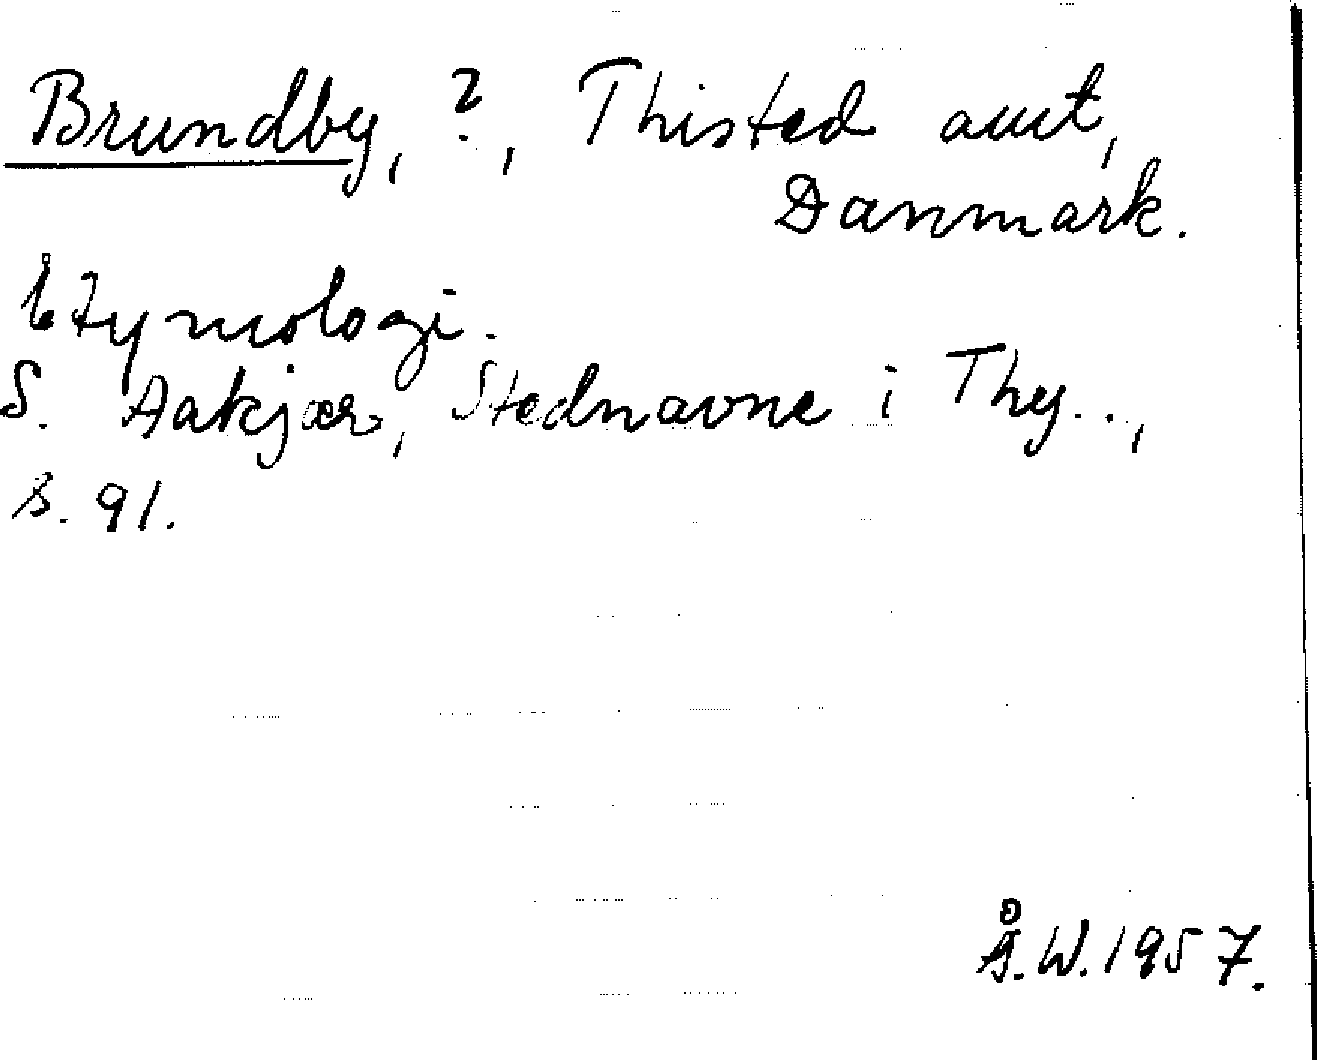 Brundby, ?, Thisted amt,
Danmark.
Etymologi.
S. Aakjær, Stednavne i Thy..,
s. 91.
Å.W. 1957.